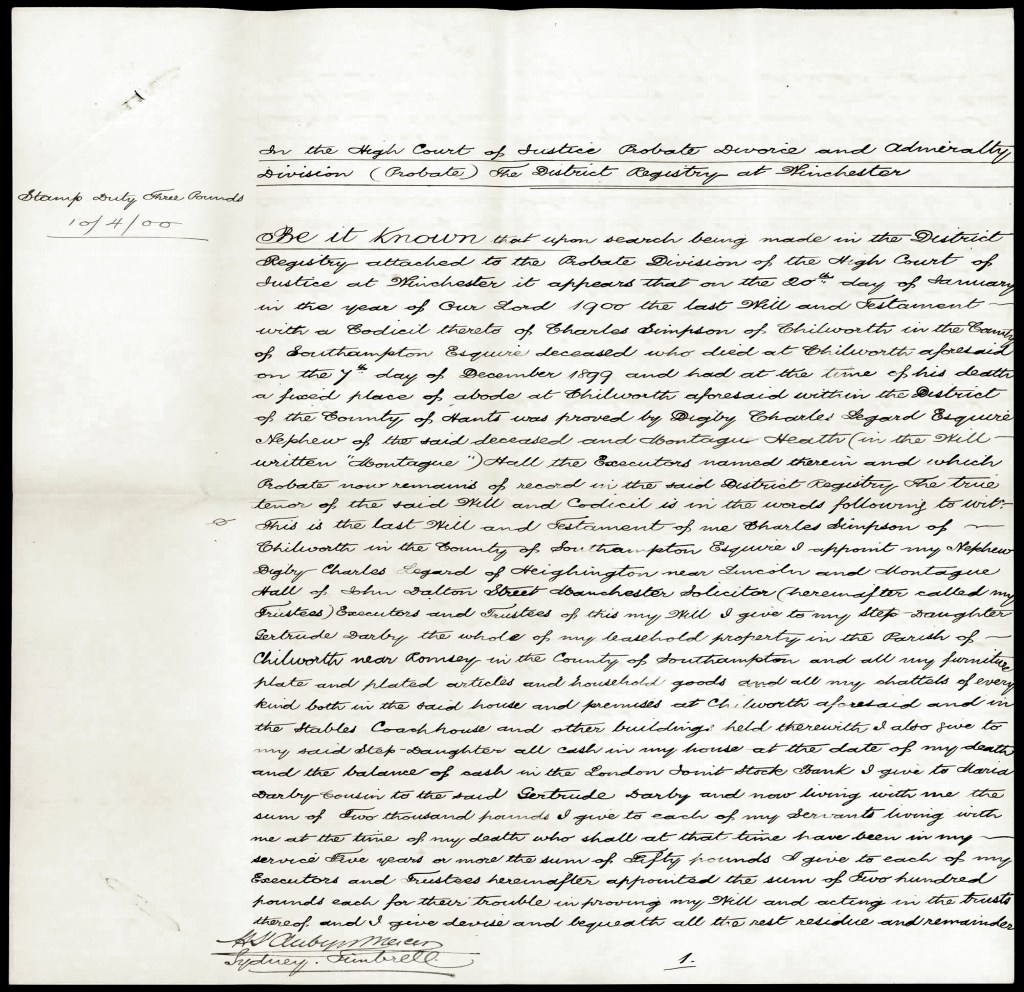 In the High Court of Justice Probate Divorce and Admiralty
Division (Probate) The District Registry at Winchester
Stamp Duty Three Pounds
10/4/00
Be it Known that upon search being made in the District
Registry attached to the Probate Division of the High Court of
Justice at Winchester it appears that on the 20th day of January
in the year of Our Lord 1900 the last Will and Testament —
with a Codicil thereto of Charles Simpson of Chilworth in the County
of Southampton Esquire deceased who died at Chilworth aforesaid
on the 7th day of December 1899 and had at the time of his death
a fixed place of abode at Chilworth aforesaid within the District
of the County of Hants was proved by Digby Charles Legard Esquire
Nephew of the said deceased and Montagu Heath (in the Will —
written "Montague") Hall the Executors named therein and which
Probate now remains of record in the said District Registry The true
tenor of the said Will and Codicil is in the words following to wit:
This is the last Will and Testament of me Charles Simpson of —
Chilworth in the County of Southampton Esquire I appoint my Nephew
Digby Charles Legard of Heighington near Lincoln and Montague
Hall of John Dalton Street Manchester Solicitor (hereinafter called my
Trustees) Executors and Trustees of this my Will I give to my Step-Daughter
Gertrude Darby the whole of my leasehold property in the Parish of —
Chilworth near Romsey in the County of Southampton and all my furniture
plate and plated articles and household goods and all my chattels of every
kind both in the said house and premises at Chilworth aforesaid and in
the Stables Coachhouse and other buildings held therewith I also give to
my said Step-Daughter all cash in my house at the date of my death
and the balance of cash in the London Joint Stock Bank I give to Maria
Darby Cousin to the said Gertrude Darby and now living with me the
sum of Two thousand pounds I give to each of my Servants living with
me at the time of my death who shall at that time have been in my —
service Five years or more the sum of Fifty pounds I give to each of my
Executors and Trustees hereinafter appointed the sum of Two hundred
pounds each for their trouble in proving my Will and acting in the trusts
thereof and I give devise and bequeath all the rest residue and remainder
H St Aubyn Mercer
Sydney. Timbrell.
1.